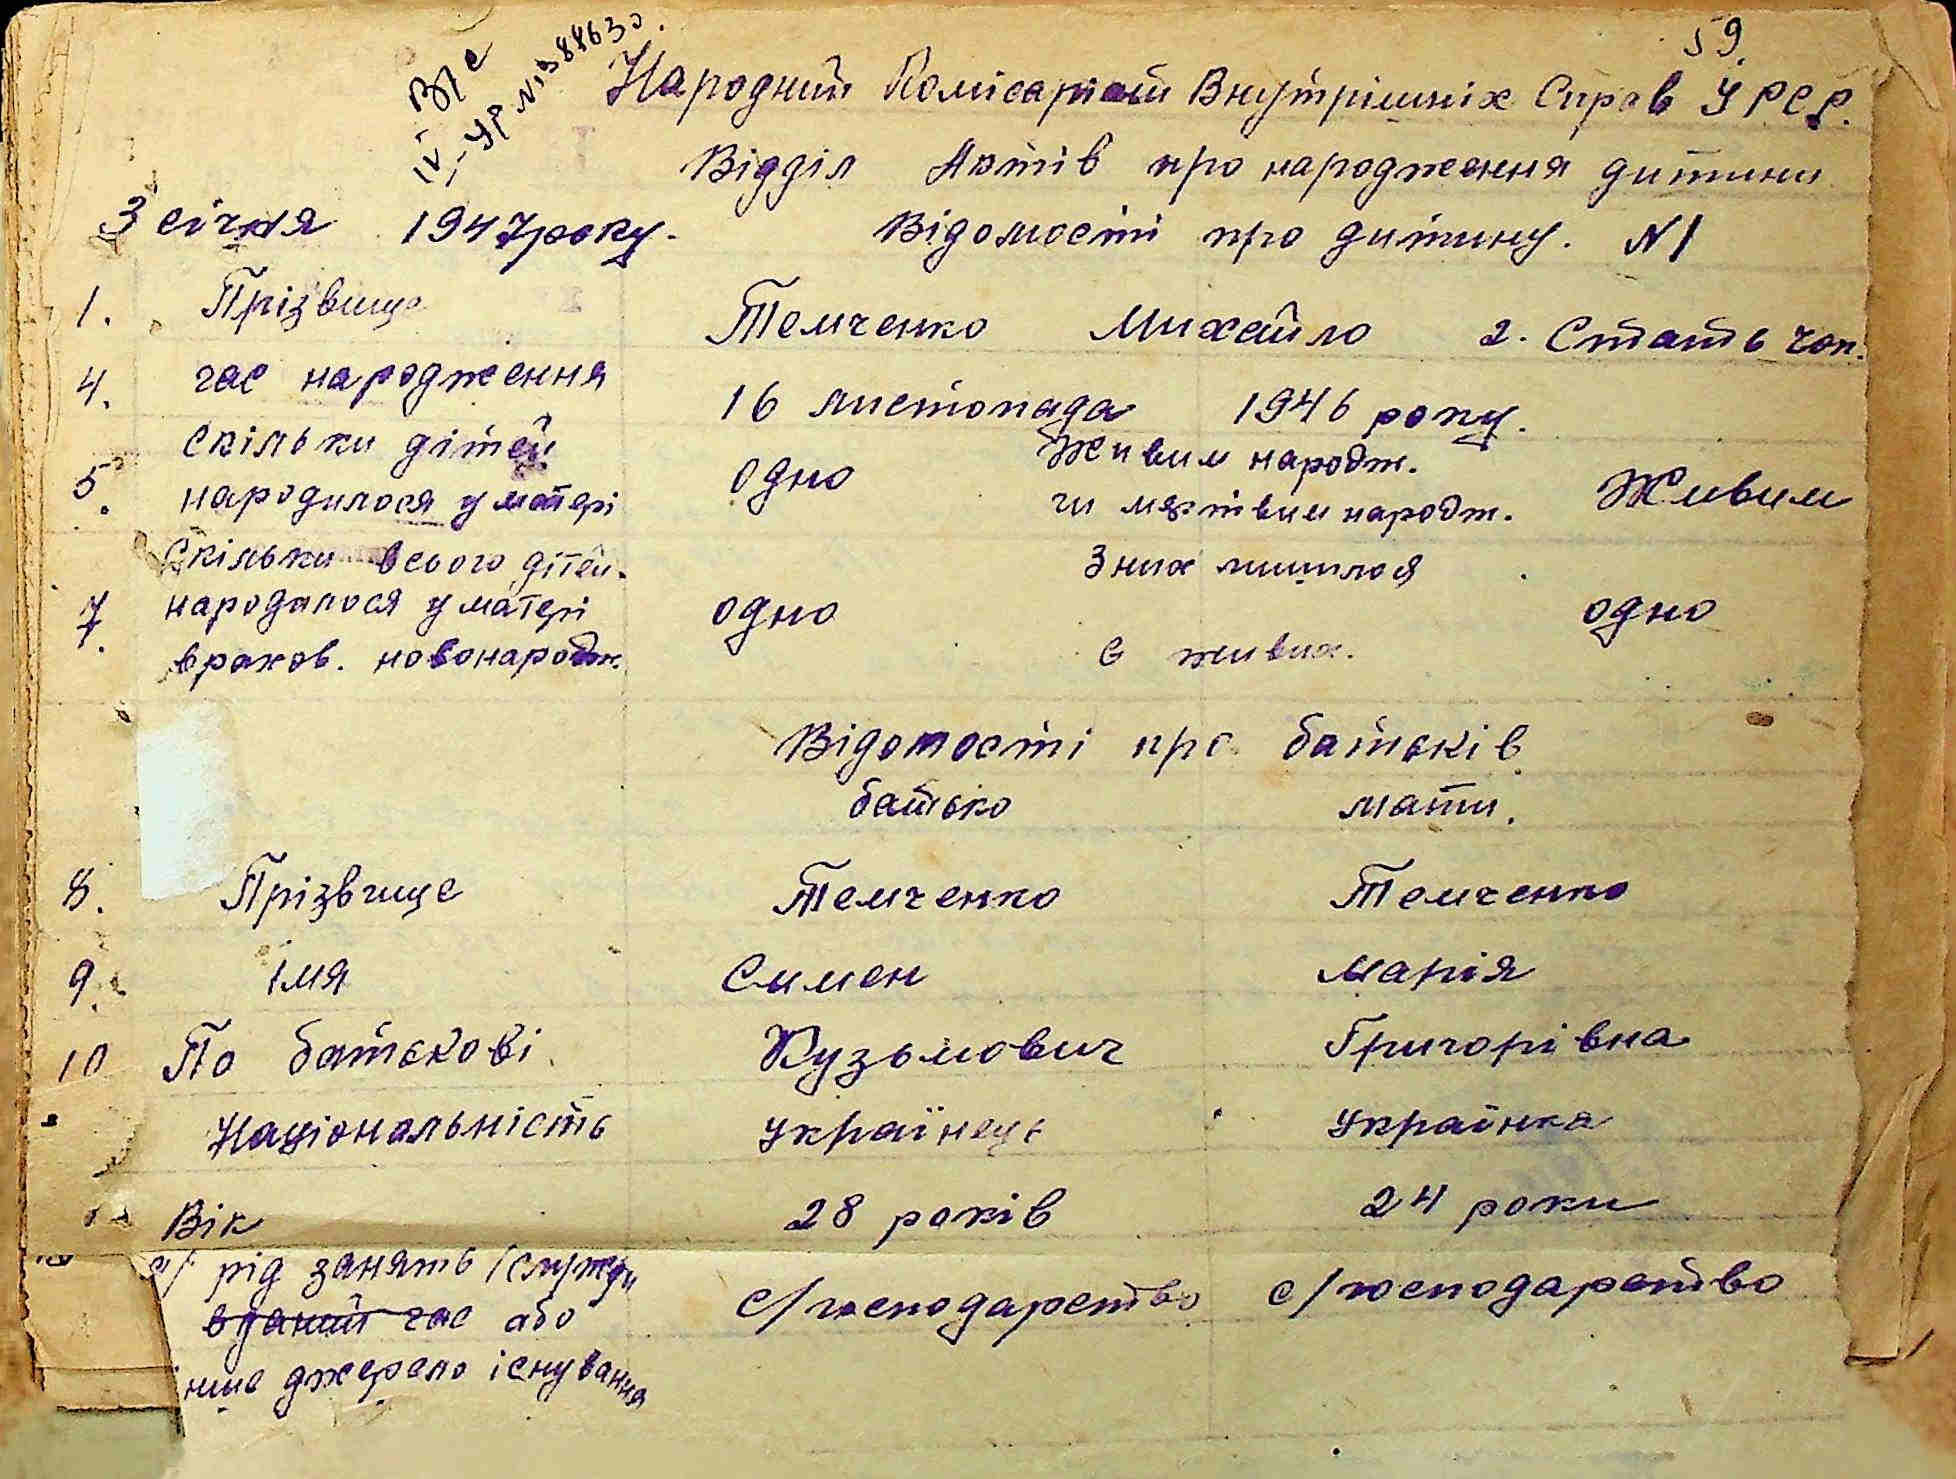 59.
IV-УР №388630.
Народний Комісаріат Внутрішніх Справ УРСР.
Відділ Актів про народження дитини
3 січня 1947 року. Відомості про дитину. N1
1. Прізвище Темченко Михайло 2. Стать чол.
4. час народження 16 листопада 1946 року.
5. скільки дітей народилося у матері одно Живим народж. чи мертвим народж. Живим
7. Скільки всього дітей народилося у матері враков. новонародж. одно З них лишилося в живих. одно
Відомості про батьків
батько мати.
8. Прізвище Темченко Темченко
9. імя Симен Марія
10 По батькові Кузьмович Григорівна
Національність Українець Українка
Вік 28 років 24 роки
а/ рід занять /служби
в даний час або с/господарство с/господарство
інше джерело існування